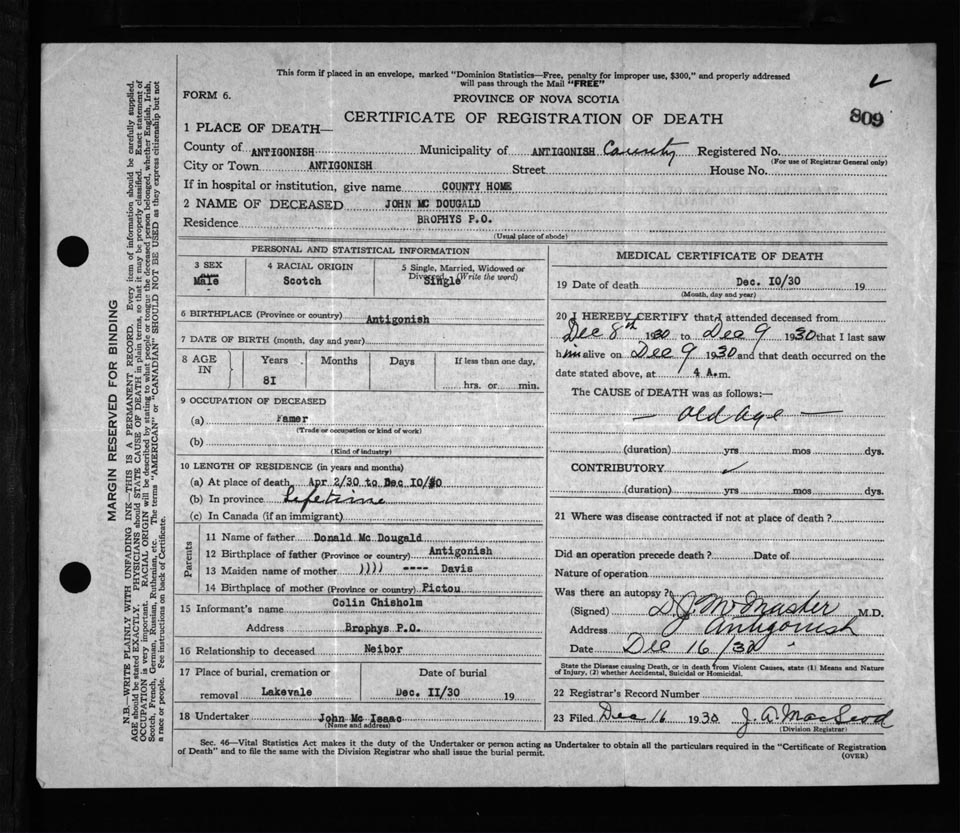 This form if placed in an envelope, marked "Dominion Statistics—Free, penalty for improper use, $300," and properly addressed
will pass through the Mail "FREE"
FORM 6.
PROVINCE OF NOVA SCOTIA
CERTIFICATE OF REGISTRATION OF DEATH
809
1 PLACE OF DEATH—
County of ANTIGONISH Municipality of ANTIGONISH County Registered No.
(For use of Registrar General only)
City or Town ANTIGONISH Street House No.
If in hospital or institution, give name COUNTY HOME
2 NAME OF DECEASED JOHN MC DOUGALD
Residence BROPHYS P.O.
(Usual place of abode)
PERSONAL AND STATISTICAL INFORMATION
3 SEX
Male
4 RACIAL ORIGIN
Scotch
5 Single, Married, Widowed or
Divorced (Write the word)
Single
6 BIRTHPLACE (Province or country) Antigonish
7 DATE OF BIRTH (month, day and year)
8 AGE IN
Years Months Days If less than one day,
81 hrs. or min.
9 OCCUPATION OF DECEASED
(a) Famer
(Trade or occupation or kind of work)
(b)
(Kind of industry)
10 LENGTH OF RESIDENCE (in years and months)
(a) At place of death Apr 2/30 to Dec 10/30
(b) In province Lifetime
(c) In Canada (if an immigrant)
Parents
11 Name of father Donald Mc Dougald
12 Birthplace of father (Province or country) Antigonish
13 Maiden name of mother )))) ---- Davis
14 Birthplace of mother (Province or country) Pictou
15 Informant's name Colin Chisholm
Address Brophys P.O.
16 Relationship to deceased Neibor
17 Place of burial, cremation or Date of burial
removal Lakevale Dec. 11/30 19
18 Undertaker John Mc Isaac
(Name and address)
MEDICAL CERTIFICATE OF DEATH
19 Date of death Dec. 10/30 19
(Month, day and year)
20 I HEREBY CERTIFY that I attended deceased from
Dec 8th 1930 to Dec 9 1930 that I last saw
him alive on Dec 9 1930 and that death occurred on the
date stated above, at 4 A.m.
The CAUSE of DEATH was as follows:—
— Old Age —
(duration) yrs mos dys.
CONTRIBUTORY ✓
(duration) yrs mos dys.
21 Where was disease contracted if not at place of death?
Did an operation precede death? Date of
Nature of operation
Was there an autopsy?
(Signed) D.J. McMaster M.D.
Address Antigonish
Date Dec 16/30
State the Disease causing Death, or in death from Violent Causes, state (1) Means and Nature
of Injury, (2) whether Accidental, Suicidal or Homicidal.
22 Registrar's Record Number
23 Filed Dec 16 1930 J. A. MacLeod
(Division Registrar)
Sec. 46—Vital Statistics Act makes it the duty of the Undertaker or person acting as Undertaker to obtain all the particulars required in the "Certificate of Registration
of Death" and to file the same with the Division Registrar who shall issue the burial permit.
(OVER)
MARGIN RESERVED FOR BINDING
N.B.—WRITE PLAINLY WITH UNFADING INK—THIS IS A PERMANENT RECORD. Every item of information should be carefully supplied.
AGE should be stated EXACTLY. PHYSICIANS should STATE CAUSE OF DEATH in plain terms, so that it may be properly classified. Exact statement of
OCCUPATION is very important. RACIAL ORIGIN will be described by stating to what people or tongue the deceased person belonged, whether English, Irish,
Scotch, French, German, Russian, Ruthenian, etc. The terms "AMERICAN" or "CANADIAN" SHOULD NOT BE USED as they express citizenship but not
a race or people. See instructions on back of Certificate.